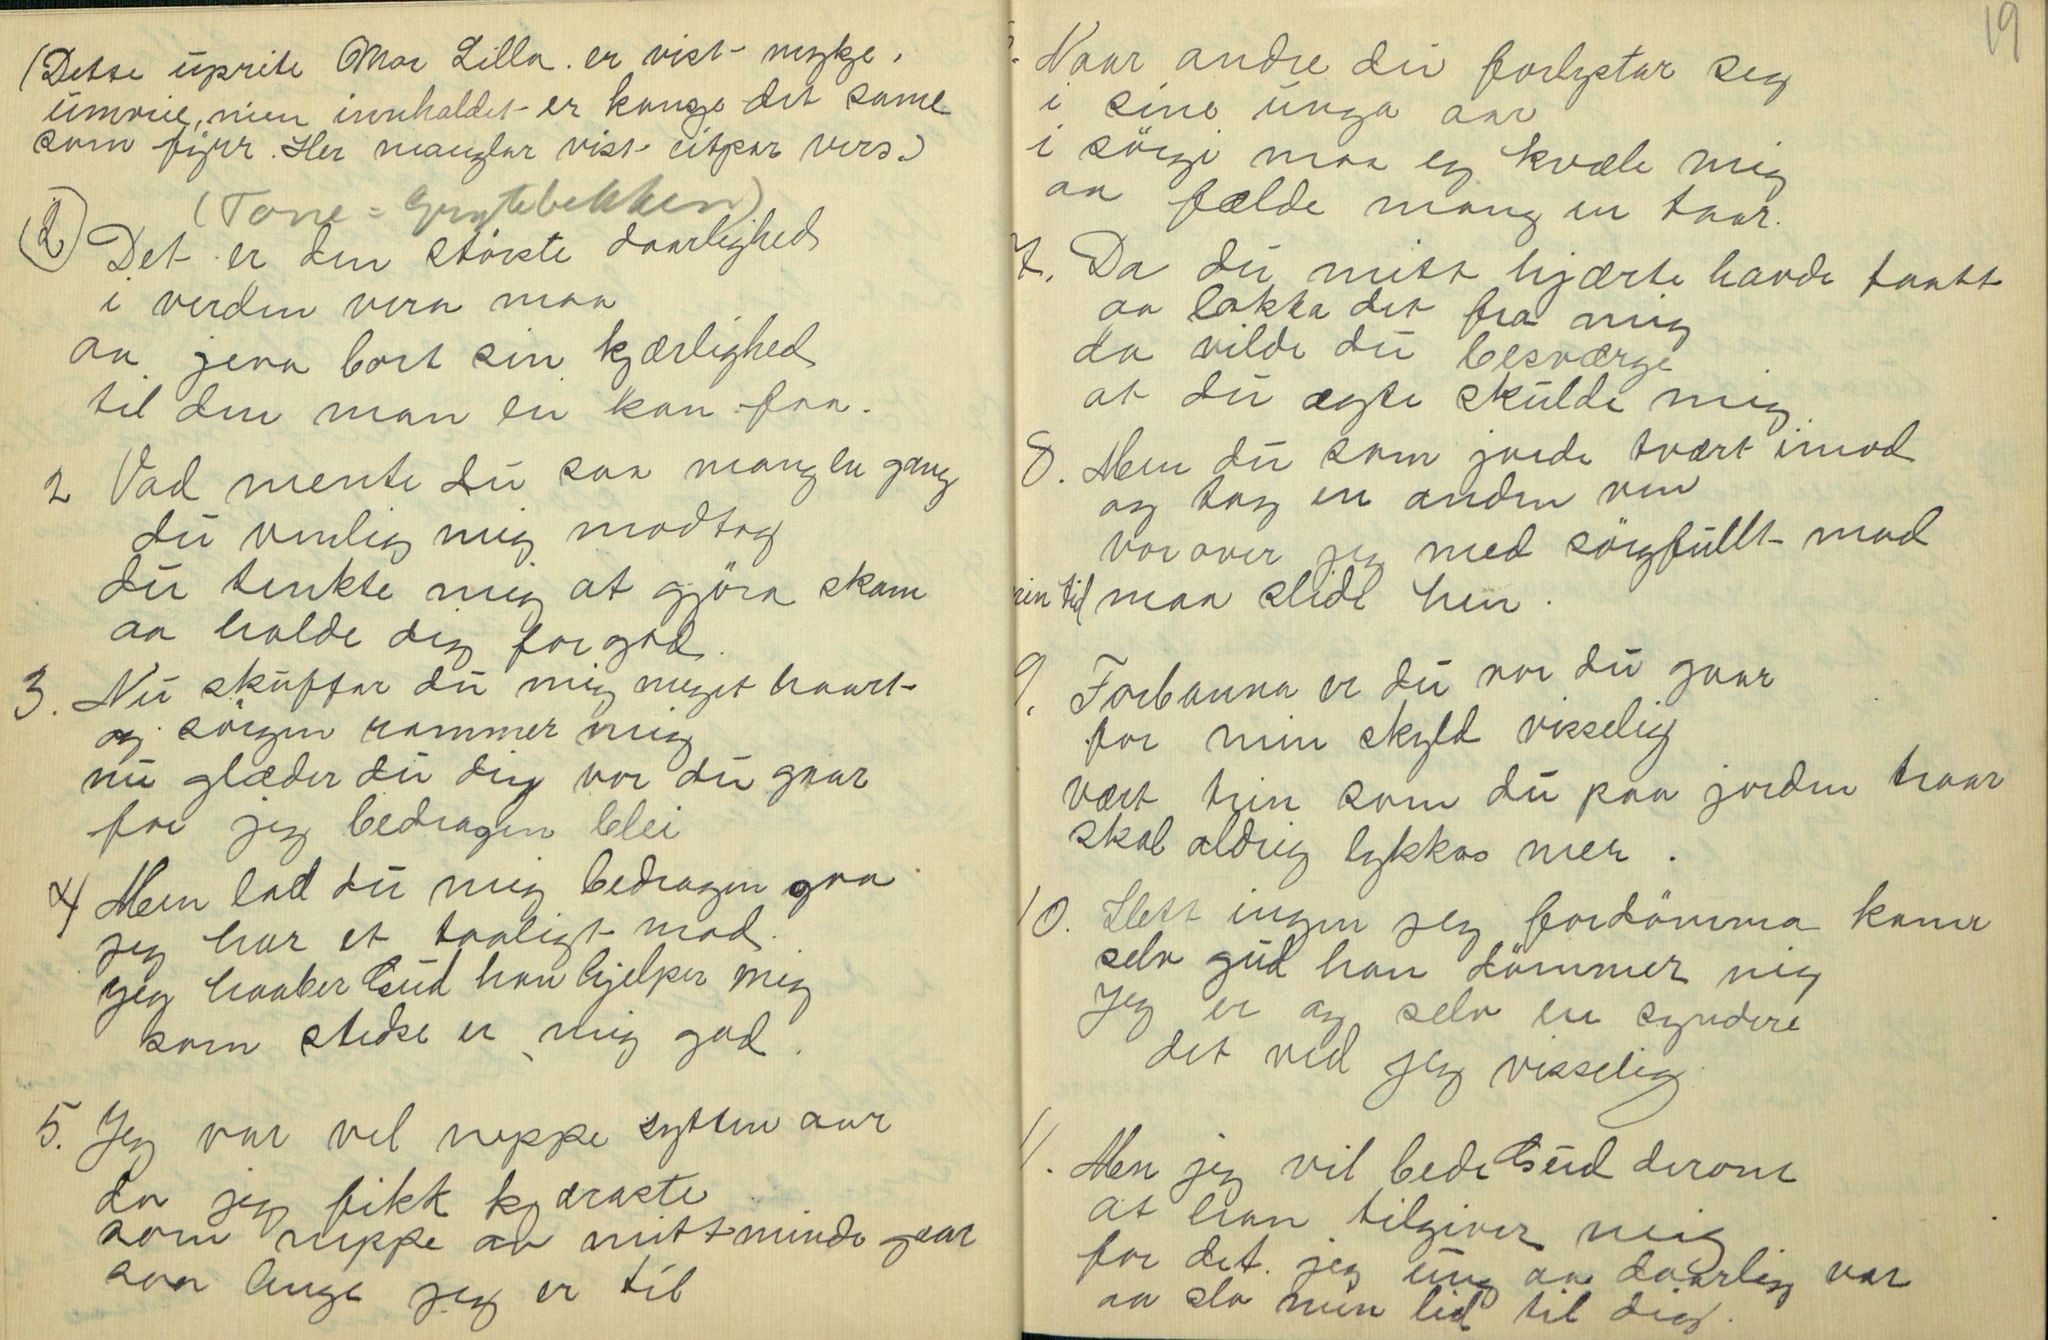 (Dette üprite Mor Lilla er vist mykje
ümvrie, men innhaldet er kanse det same
som fyrr. Her manglar vist eitpar vers.)
(Tone = Grytebekken)
(1) Det er den störste daarlighed
i verden vera maa
aa jeva bort sin kjærlighed
til den man ei kan faa.
2 Vad mente dü saa mang en gang
dü venlig mig modtog
dü tenkte mig at gjöra skam
aa holde dig for god.
3. Nü sküffar dü mig meget haart
og sorgen rammer mig
nü glæder dü dig vor dü gaar
for jeg bedragen blei
4 Men lad dü mig bedragen gaa
jeg har et taaligt mod.
jeg haaber Güd han hjelper mig
som stedse er mig god.
5. Jeg var vel neppe sytten aar
da jeg fikk kjæraste
som neppe av mitt minde gaar
saa lenge jeg er til
19
Naar andre dü forlystar seg
i sine ünga aar
i sörgi maa eg kvæle mig
aa fælde mang en taar.
7. Da dü mitt hjærte havde taatt
aa lokka det fra mig
da vilde dü besværge
at dü ægte skülde mig
8. Men dü som jorde tvært imod
og tog en anden ven
vorover jeg med sörgfüllt mod
min tid maa slide hen.
9. Forbanna er dü vor dü gaar
for min skyld visselig
vært trin som dü paa jorden traar
skal aldrig lykkas mer.
10. Slett ingen jeg fordömma kann
selv güd han dömmer mig
Jeg er og selv en syndere
det ved jeg visselig
11. Men jeg vil bede Güd derom
at han tilgiver mig
for det jeg üng aa daarlig var
aa slo min lid til dig.